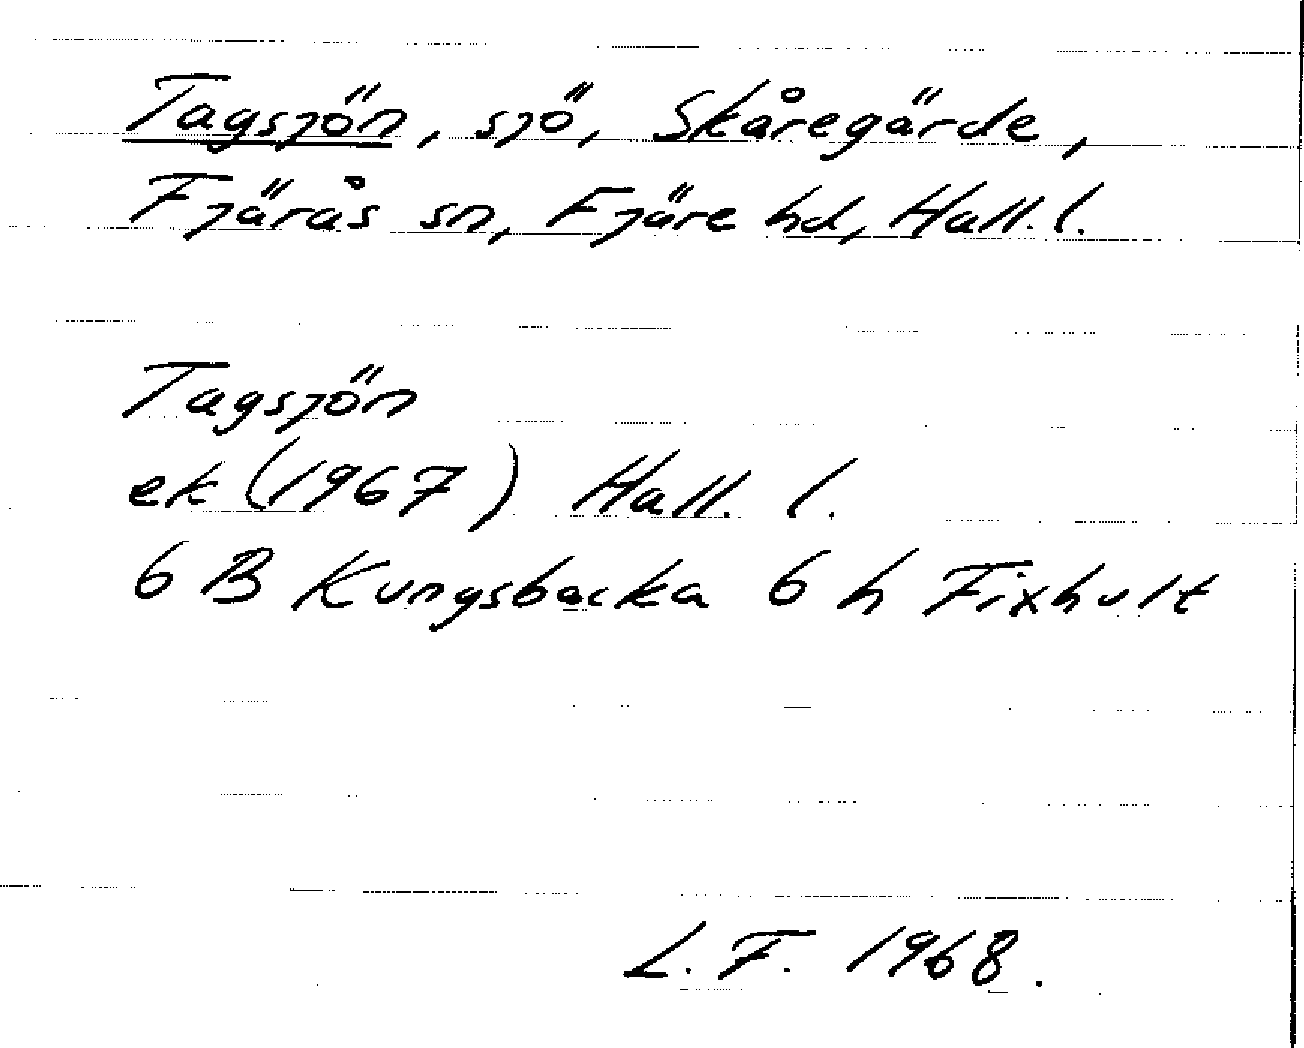 Tagsjön, sjö, Skåregärde,
Fjärås sn, Fjäre hd, Hall. l.
Tagsjön
ek (1967) Hall. l.
6 B Kungsbacka 6 h Fixhult
L. F. 1968.